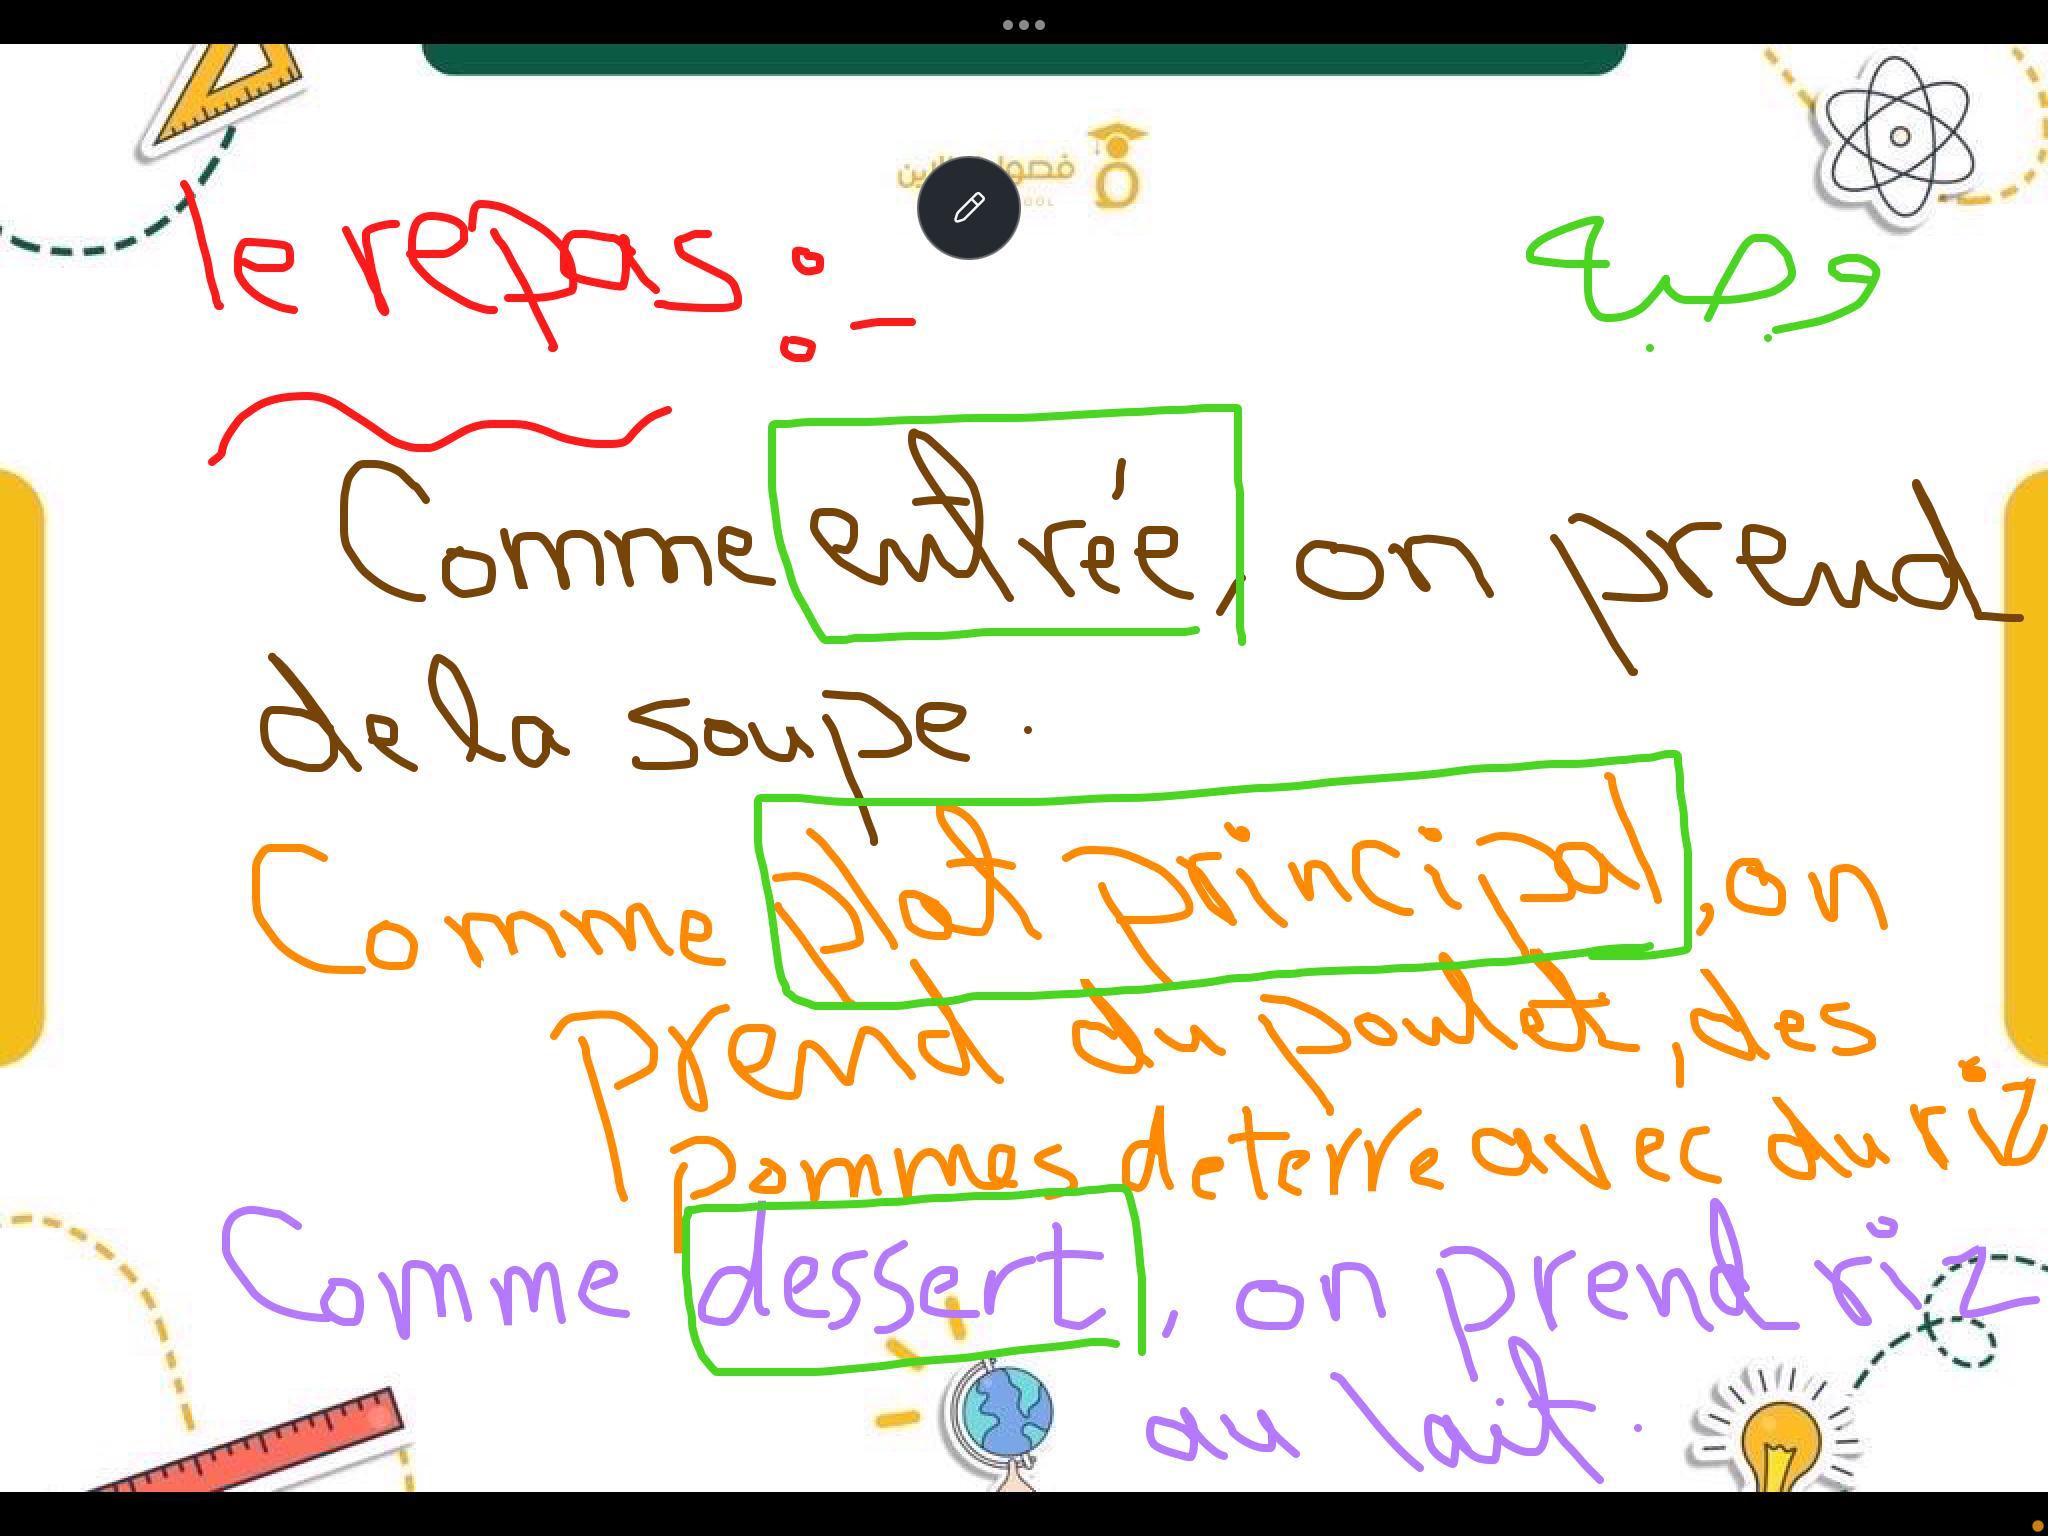 le repas :-
وجبه
Comme entrée, on prend
de la soupe.
Comme plat principal, on
prend du poulet, des
pommes de terre avec du riz
Comme dessert, on prend riz
au lait.